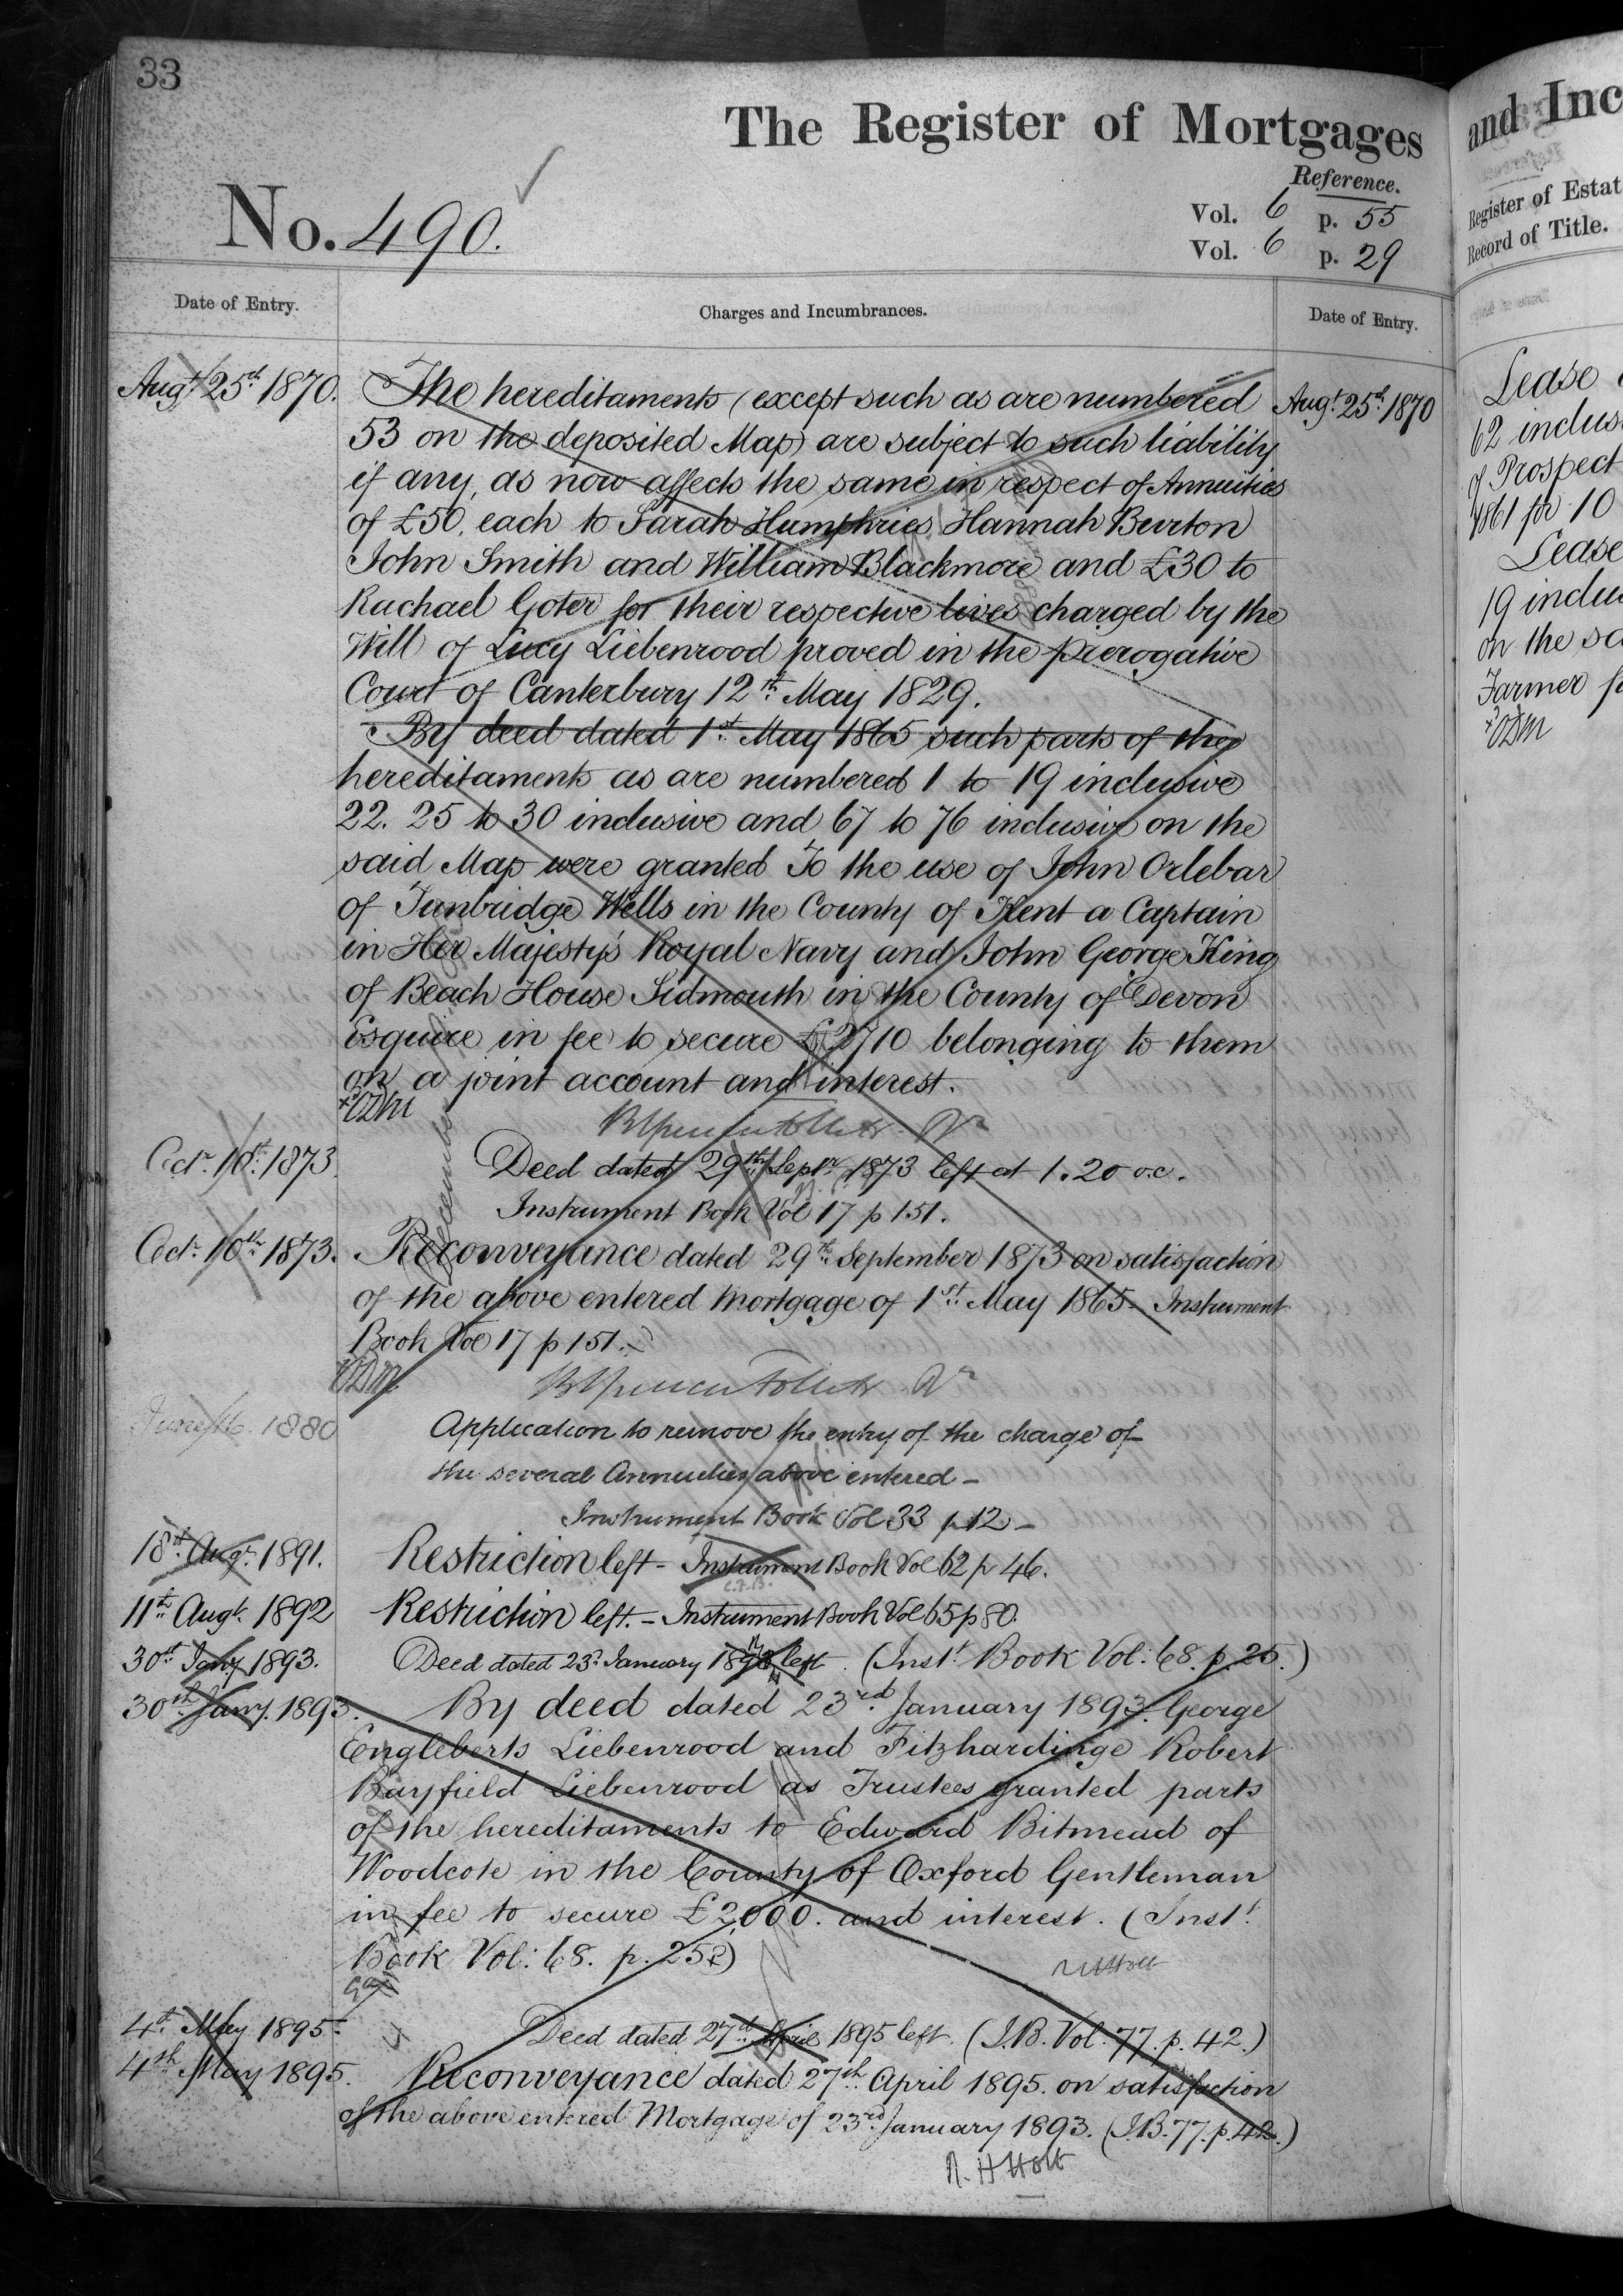 33
The Register of Mortgages
Reference.
No. 490.
Vol. 6 p. 55
Vol. 6 p. 29
Date of Entry.
Charges and Incumbrances.
Date of Entry.
Augt. 25th 1870.
Augt. 25th 1870
The hereditaments (except such as are numbered
53 on the deposited Map) are subject to such liability
if any, as now affects the same in respect of Annuities
of £50, each to Sarah Humphries Hannah Burton
John Smith and William Blackmore and £30 to
Rachael Goter for their respective lives charged by the
Will of Lucy Liebenrood proved in the Prerogative
Court of Canterbury 12th May 1829.
By deed dated 1st May 1865 such parts of the
hereditaments as are numbered 1 to 19 inclusive
22. 25 to 30 inclusive and 67 to 76 inclusive on the
said Map were granted To the use of John Orlebar
of Tunbridge Wells in the County of Kent a Captain
in Her Majesty's Royal Navy and John George King
of Beach House Sidmouth in the County of Devon
Esquire in fee to secure £2710 belonging to them
on a joint account and interest.
Octr. 10th 1873
Deed dated 29th Septr. 1873 left at 1.20 o.c.
Instrument Book Vol 17 p 151.
Octr. 10th 1873.
Reconveyance dated 29th September 1873 on satisfaction
of the above entered Mortgage of 1st May 1865 - Instrument
Book Vol 17 p 151.
June 16. 1880
Application to remove the entry of the charge of
the several Annuities above entered -
Instrument Book Vol 33 p 12 -
18th Augt. 1891.
Restriction left - Instrument Book Vol 62 p 46.
11th Augt. 1892
Restriction left. - Instrument Book Vol 65 p 80.
30th Jany 1893.
Deed dated 23d January 1893 left. (Inst. Book Vol: 68. p. 25.)
30th Jany. 1893.
By deed dated 23rd January 1893. George
Engleberts Liebenrood and Fitzhardinge Robert
Bayfield Liebenrood as Trustees granted parts
of the hereditaments to Edward Bitmead of
Woodcote in the County of Oxford Gentleman
in fee to secure £2,000. and interest. (Inst.
Book Vol: 68. p. 25)
4th May 1895.
Deed dated 27th April 1895 left. (I.B. Vol. 77. p. 42.)
4th May 1895.
Reconveyance dated 27th April 1895. on satisfaction
of the above entered Mortgage of 23rd January 1893. (I.B. 77. p. 42.)
R. H Holt
and Inc
Register of Estat
Record of Title.
Lease
62 inclus
of Prospect
1861 for 10
Lease
19 inclus
on the sa
Farmer